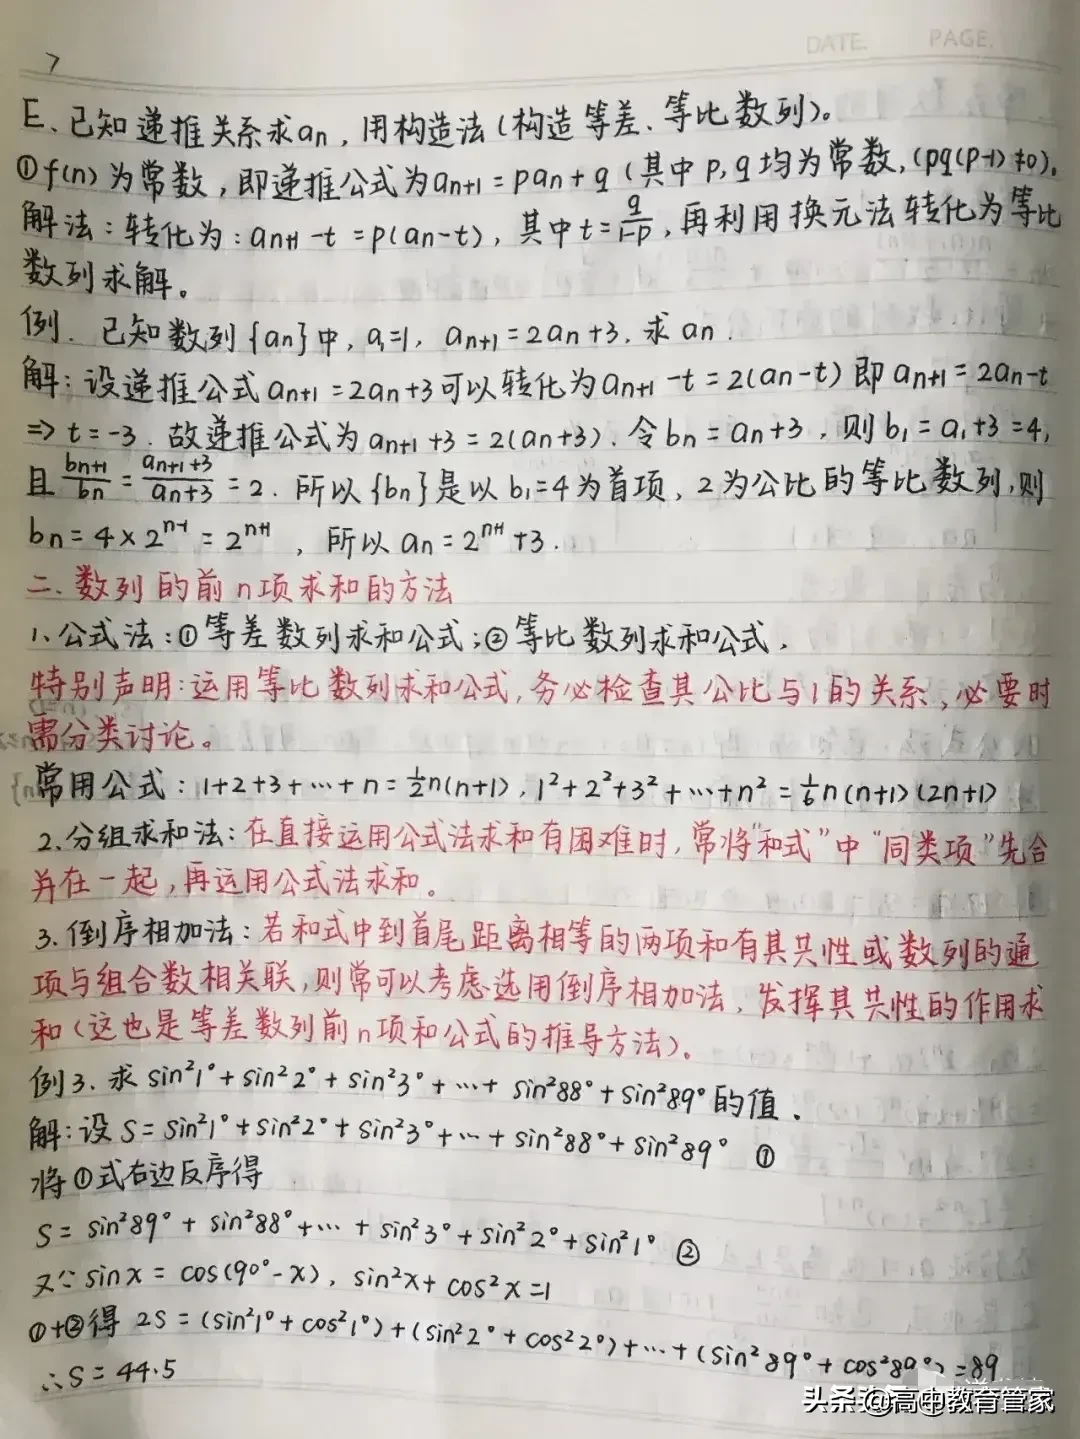 DATE. PAGE.
7
E、已知递推关系求an，用构造法(构造等差、等比数列)。
①f(n)为常数，即递推公式为an+1=pan+q(其中p,q均为常数,(pq(p-1)≠0)。
解法：转化为：an+1-t=p(an-t)，其中t=q/1-p，再利用换元法转化为等比
数列求解。
例．已知数列{an}中，a1=1，an+1=2an+3．求an．
解：设递推公式an+1=2an+3可以转化为an+1-t=2(an-t)即an+1=2an-t
=>t=-3．故递推公式为an+1+3=2(an+3)．令bn=an+3，则b1=a1+3=4，
且bn+1/bn=an+1+3/an+3=2．所以{bn}是以b1=4为首项，2为公比的等比数列，则
bn=4×2^n-1=2^n+1，所以an=2^n+1+3．
二．数列的前n项求和的方法
1、公式法：①等差数列求和公式；②等比数列求和公式．
特别声明：运用等比数列求和公式，务必检查其公比与1的关系，必要时
需分类讨论。
常用公式：1+2+3+…+n=½n(n+1)，1²+2²+3²+…+n²=1/6n(n+1)(2n+1)
2、分组求和法：在直接运用公式法求和有困难时，常将“和式”中“同类项”先合
并在一起，再运用公式法求和。
3．倒序相加法：若和式中到首尾距离相等的两项和有其共性或数列的通
项与组合数相关联，则常可以考虑选用倒序相加法，发挥其共性的作用求
和(这也是等差数列前n项和公式的推导方法)。
例3．求sin²1°+sin²2°+sin²3°+…+sin²88°+sin²89°的值．
解：设S=sin²1°+sin²2°+sin²3°+…+sin²88°+sin²89° ①
将①式右边反序得
S=sin²89°+sin²88°+…+sin²3°+sin²2°+sin²1° ②
又∵sinx=cos(90°-x)，sin²x+cos²x=1
①+②得 2S=(sin²1°+cos²1°)+(sin²2°+cos²2°)+…+(sin²89°+cos²89°)=89
∴S=44.5
头条 @高中教育管家